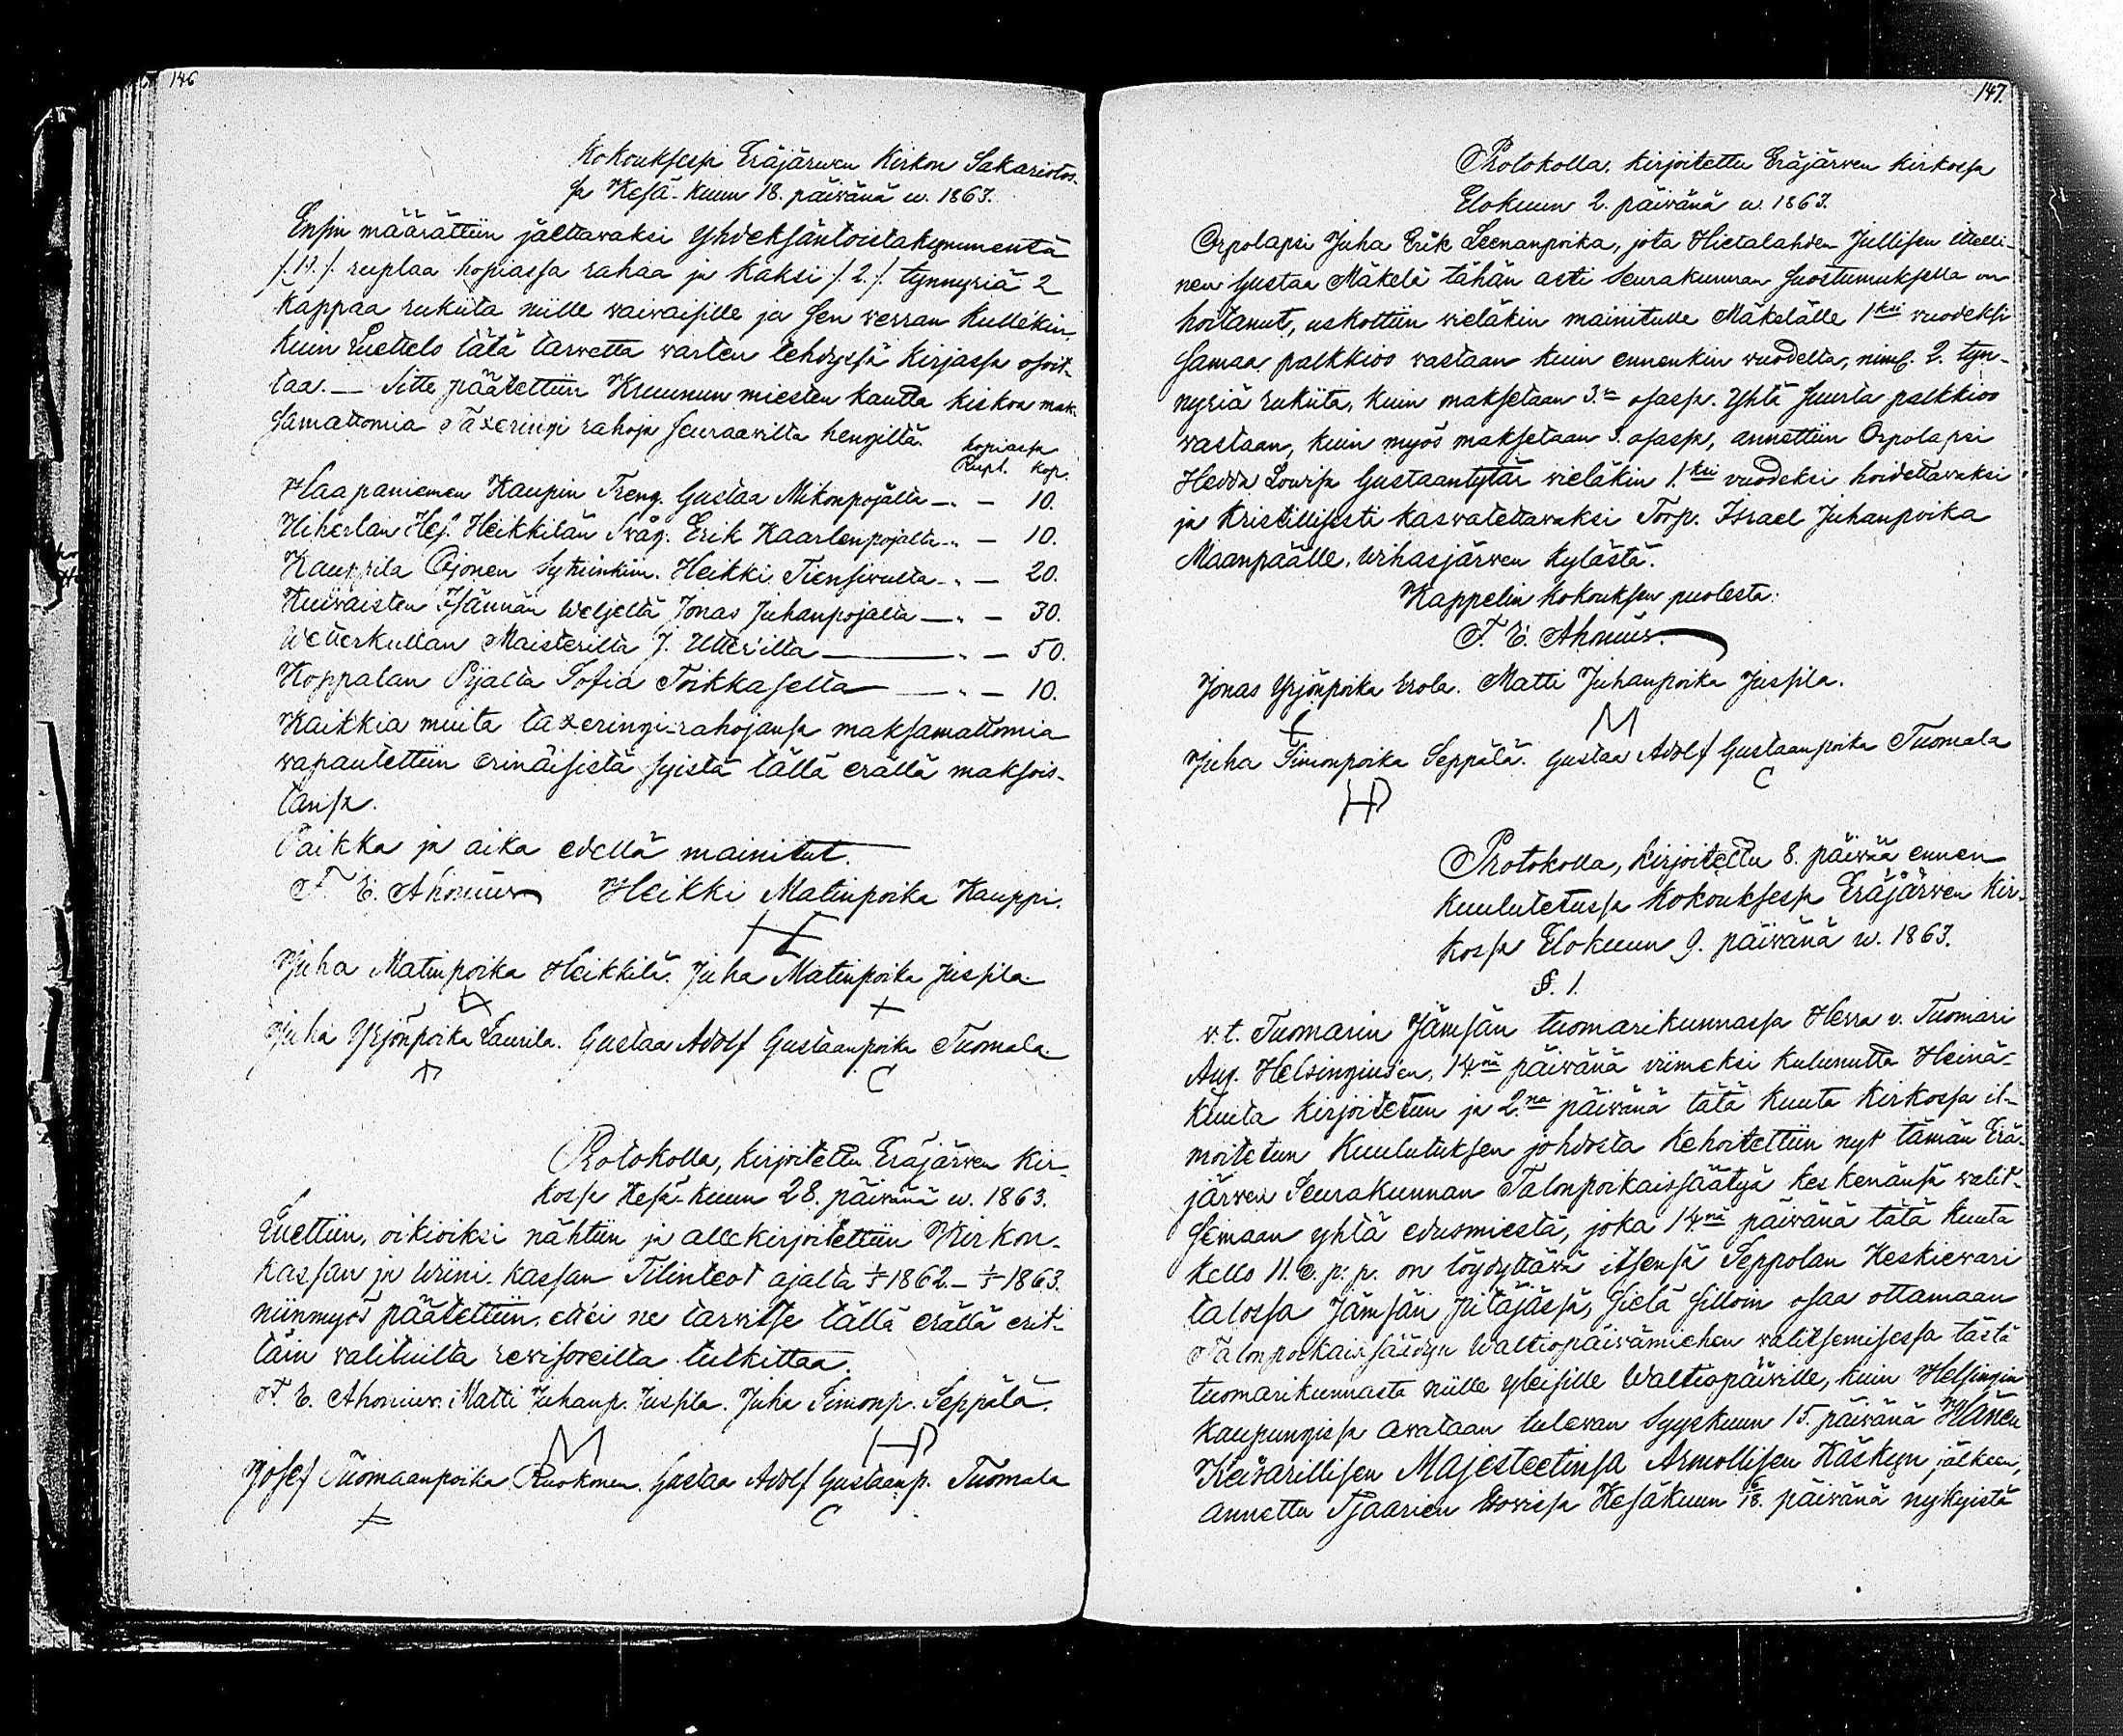 146
Kokouksessa Eräjärwen Kirkon Sakaristos-
sa Kesä-kuun 18. päiwänä w. 1863.
Ensin määrättiin jaettawaksi Yhdeksäntoistakymmentä
/:19./. ruplaa hopiassa rahaa ja kaksi /.2./. tynnyriä 2
kappaa rukiita niille waiwaisille ja sen werran kullekin,
kuin Luettelo tätä tarwetta warten tehdyssä kirjassa osoit-
taa. — Sitte päätettiin Kruunun miesten kautta kiskoa mak-
samattomia Taxeringi rahoja seuraawilta hengiltä.
hopiassa
Rupl. kop.
Haapaniemen Kaupin Treng. Gustaa Mikonpojalta —„— 10.
Hiherlän Hej. Heikkilän Swåg. Erik Kaarlenpojalta „— 10.
Kauppila Ojonen Sytriinkim. Heikki Tiensiwulta „— 20.
Kuiwaisten Isännän Weljeltä Jonas Juhanpojalta —„— 30.
Wetterkullan Maisterilta J. Utter'ilta — „— 50.
Hoppalan Pijalta Sofia Toikkaselta — „— 10.
Kaikkia muita taxeringi-rahojansa maksamattomia
wapautettiin erinäisistä syistä tällä erällä maksois-
tansa.
Paikka ja aika edellä mainitut.
F. E. Ahonius Heikki Matinpoika Kauppi.
Juha Matinpoika Heikkilä. Juha Matinpoika Jussila.
Juha Yrjönpoika Laurila. Gustaa Adolf Gustaanpoika Tuomala.
C
Protokolla, kirjoitettu Eräjärwen Kir-
kossa Kesä-kuun 28. päiwänä w. 1863.
Luettiin, oikioiksi nähtiin ja allekirjoitettiin Kirkon-
kassan ja Wiini kassan Tilinteot ajalta 1/5 1862 — 1/5 1863.
niinmyös päätettiin, ett'ei ne tarwitse tällä erällä erit-
täin walituilta rewisoreilta tutkittaa.
F. E. Ahonius. Matti Juhanp. Jussila. Juha Simonp. Seppälä.
M HP
Josef Tuomaanpoika Ruokonen. Gustaa Adolf Gustaanp. Tuomala
C
147.
Protokolla, kirjoitettu Eräjärwen kirkossa
Elokuun 2. päiwänä w. 1863.
Orpolapsi Juha Erik Leenanpoika, jota Hietalahden Jullisen itelli-
nen Gustaa Mäkelä tähän asti Seurakunnan suostumuksella on
hoitanut, uskottiin wieläkin mainitulle Mäkelälle 1ksi wuodeksi
samaa palkkioo wastaan kuin ennenkin wuodelta, niml. 2. tyn-
nyriä rukiita, kuin maksetaan 3.a osassa. Yhtä suurta palkkioo
wastaan, kuin myös maksetaan 3. osassa, annettiin Orpolapsi
Hedda Lowisa Gustaantytär wieläkin 1.ksi wuodeksi hoidettawaksi
ja kristillisesti kaswatettawaksi Torp. Israel Juhanpoika
Maanpäälle, Wihasjärwen Kylästä.
Kappelin kokouksen puolesta:
F. E. Ahonius.
Jonas Yrjönpoika Erola. Matti Juhanpoika Jussila.
M
Juha Simonpoika Seppälä. Gustaa Adolf Gustaanpoika Tuomala
HP C
Protokolla, kirjoitettu 8. päiwää ennen
kuulutetussa kokouksessa Eräjärwen Kir-
kossa Elokuun 9. päiwänä w. 1863.
§. 1.
w. t. Tuomarin Jämsän tuomarikunnassa Herra v. Tuomari
Aug. Helsingiuksen, 14.nä päiwänä wiimeksi kulunutta Heinä-
kuuta kirjoitetun ja 2.na päiwänä tätä kuuta kirkossa il-
moitetun Kuulutuksen johdosta kehoitettiin nyt tämän Erä-
järwen Seurakunnan Talonpoikaissäätyä keskenänsä walit-
semaan yhtä edusmiestä, joka 14.nä päiwänä tätä kuuta
kello 11. e. p: p. on löydyttäwä itsensä Seppolan Keskiewari
talossa Jämsän Pitäjässä, sielä silloin osaa ottamaan
Talonpoikaissäädyn Waltiopäiwämiehen walitsemisessa tästä
tuomarikunnasta niille yleisille Waltiopäiwille, kuin Helsingin
kaupungissa awataan tulewan Syyskuun 15. päiwänä Hänen
Keisarillisen Majesteetinsa Armollisen Käskyn jälkeen,
annettu Tsaarien kowissa Kesäkuun 6/18. päiwänä nykyistä